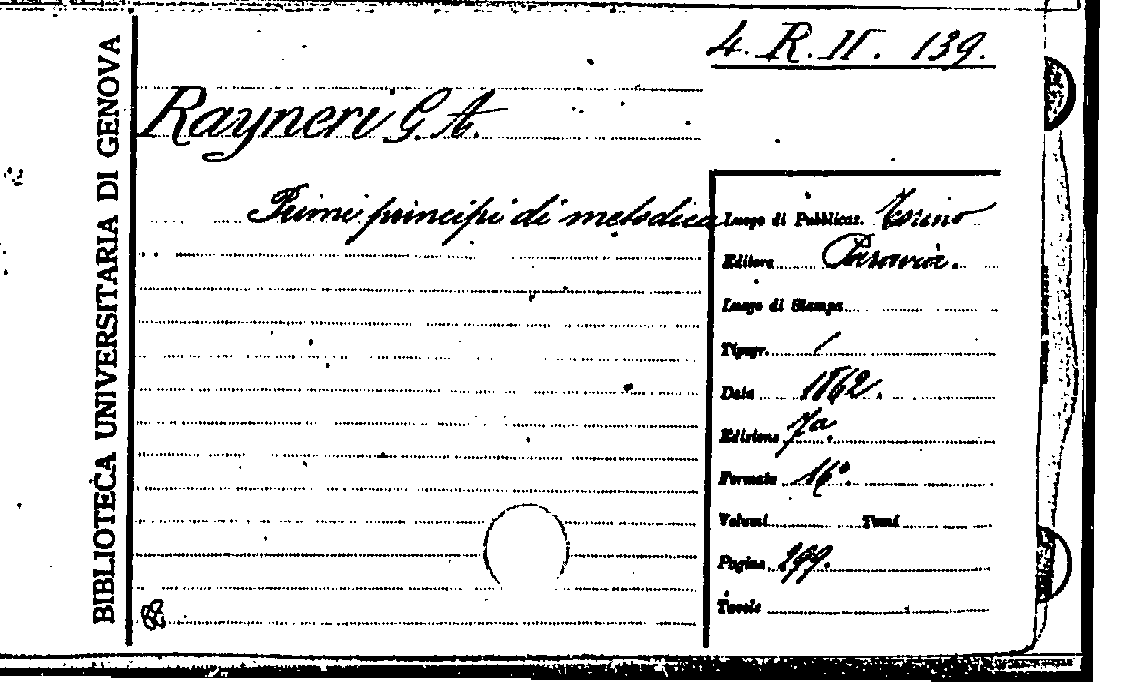 BIBLIOTECA UNIVERSITARIA DI GENOVA
4. R. II. 139.
Rayneri G. A.
Primi principi di metodica
Luogo di Pubblicaz. Torino
Editore Paravia.
Luogo di Stampa
Tipogr. /
Data 1862.
Edizione 7a.
Formato 16°.
Volumi Tomi
Pagine 199.
Tavole